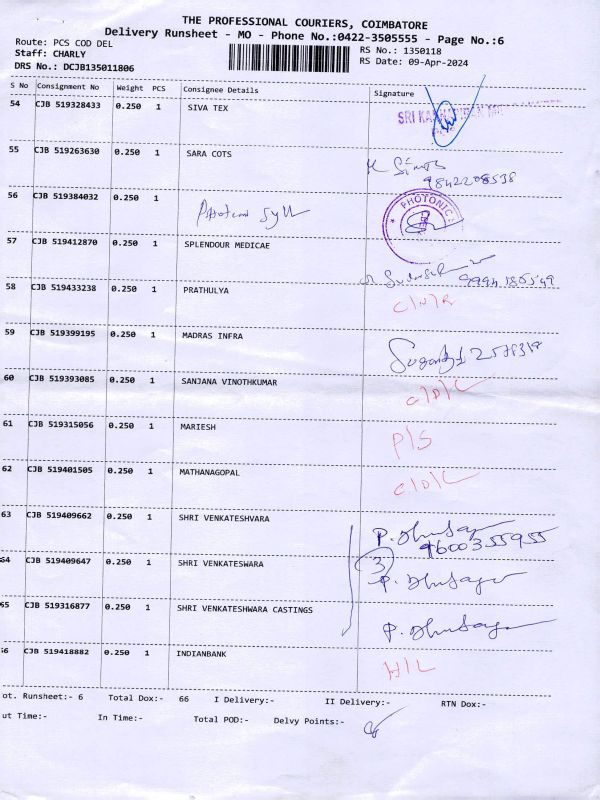 THE PROFESSIONAL COURIERS, COIMBATORE
Delivery Runsheet - MO - Phone No.:0422-3505555 - Page No.:6
Route: PCS COD DEL
RS No.: 1350118
Staff: CHARLY
RS Date: 09-Apr-2024
DRS No.: DCJB135011806
S No Consignment No Weight PCS Consignee Details Signature
54 CJB 519328433 0.250 1 SIVA TEX
55 CJB 519263630 0.250 1 SARA COTS
9842208538
56 CJB 519384032 0.250 1
PHOTONICS
57 CJB 519412870 0.250 1 SPLENDOUR MEDICAE
58 CJB 519433238 0.250 1 PRATHULYA
C/N/R
59 CJB 519399195 0.250 1 MADRAS INFRA
60 CJB 519393085 0.250 1 SANJANA VINOTHKUMAR
C/D/L
61 CJB 519315056 0.250 1 MARIESH
P/S
62 CJB 519401505 0.250 1 MATHANAGOPAL
C/D/L
63 CJB 519409662 0.250 1 SHRI VENKATESHVARA
9600355955
3
64 CJB 519409647 0.250 1 SHRI VENKATESWARA
65 CJB 519316877 0.250 1 SHRI VENKATESHWARA CASTINGS
66 CJB 519418882 0.250 1 INDIANBANK
H/L
ot. Runsheet:- 6 Total Dox:- 66 I Delivery:- II Delivery:- RTN Dox:-
ut Time:- In Time:- Total POD:- Delvy Points:-